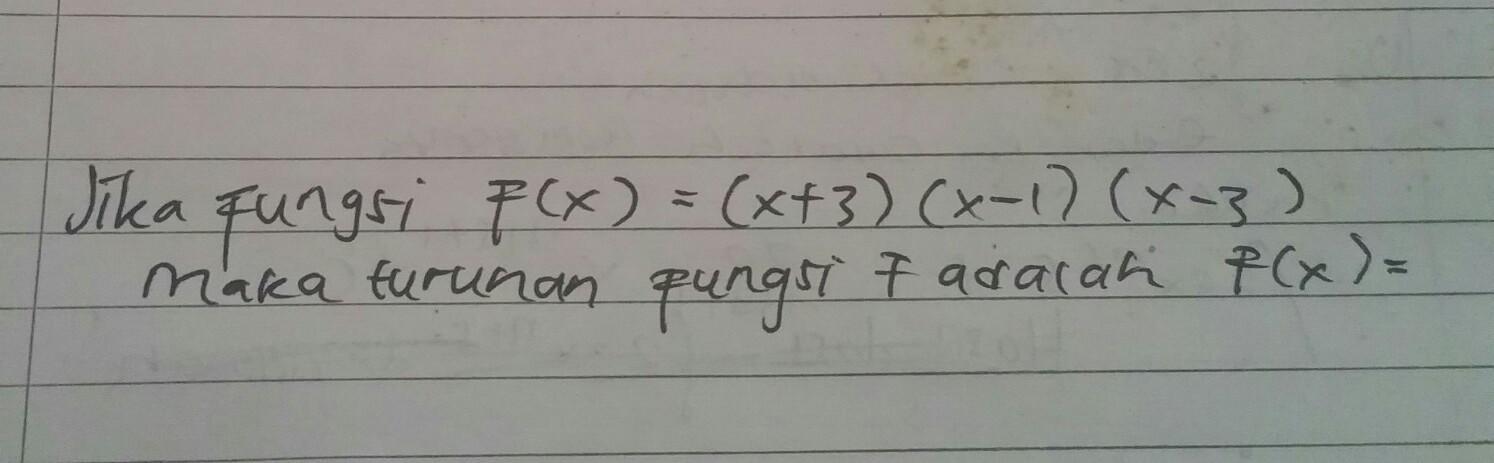 Jika fungsi F(x) = (x+3) (x-1) (x-3)
Maka turunan fungsi F adalah F(x)=